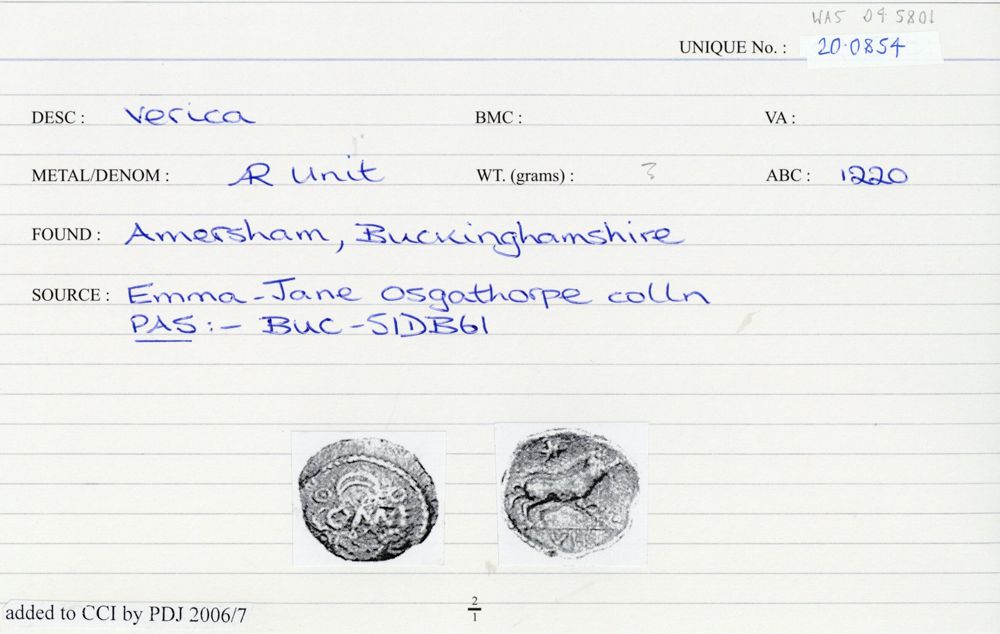 WAS 04 5801
UNIQUE No. : 20.0854
DESC : Verica BMC : VA :
METAL/DENOM : AR Unit WT. (grams) : ABC : 1220
FOUND : Amersham, Buckinghamshire
SOURCE : Emma-Jane Osgathorpe colln
PAS :- BUC-51DB61
added to CCI by PDJ 2006/7
2
1